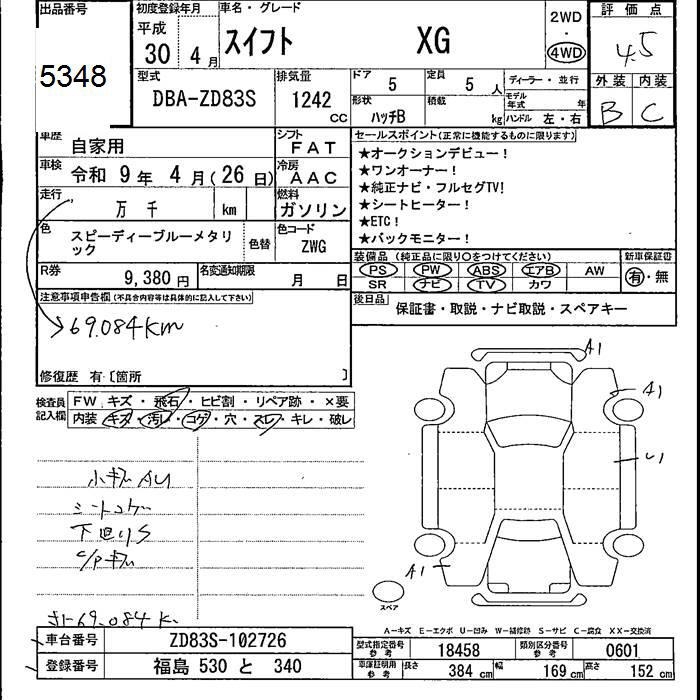 出品番号 初度登録年月 車名・グレード 2WD 評価点
平成 ・
5348 30 4月 スイフト XG 4WD 4.5
型式 排気量 ドア 5 定員 5人 ディーラー・並行 外装 内装
DBA-ZD83S 1242 cc 形状 ハッチB 積載 kg モデル年式 年 B C
ハンドル 左・右
車歴 自家用 シフト FAT セールスポイント(正常に機能するものに限ります)
★オークションデビュー!
車検 令和 9年 4月(26日) 冷房 AAC ★ワンオーナー!
★純正ナビ・フルセグTV!
走行 万 千 km 燃料 ガソリン ★シートヒーター!
★ETC!
色 スピーディーブルーメタリック 色替 色コード ZWG ★バックモニター!
装備品(純正品に限り○をつけてください) 新車保証書
R券 9,380円 名変通知期限 月 日 PS PW ABS エアB AW 有・無
SR ナビ TV カワ
注意事項申告欄(不具合内容等は具体的に記入して下さい) 後日品 保証書・取説・ナビ取説・スペアキー
69.084km
修復歴 有〔箇所 〕
検査員記入欄 FW キズ・飛石・ヒビ割・リペア跡・×要
内装 キズ・汚レ・コゲ・穴・スレ・キレ・破レ
A1
A1
小キズAU U1
シートコゲ
下回りS
C/Pキズ A1
スペア
69.084K
A-キズ E-エクボ U-凹み W-補修跡 S-サビ C-腐食 XX-交換済
車台番号 ZD83S-102726 型式指定番号 参考 18458 類別区分番号 参考 0601
登録番号 福島 530 と 340 車庫証明用 参考 長さ 384cm 幅 169cm 高さ 152cm